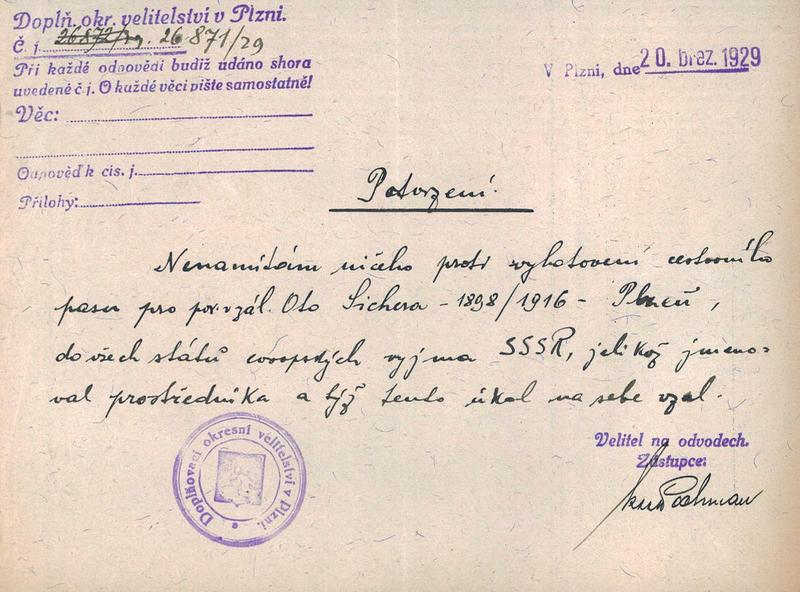 Doplň. okr. velitelství v Plzni.
Č. j. 26872/29. 26871/29
Při každé odpovědi budiž udáno shora
uvedené č.j. O každé věci pište samostatně!
Věc:
Odpověď k čís. j.
Přílohy:
V Plzni, dne 20. břez. 1929
Potvrzení.
Nenamítám ničeho proti vyhotovení cestovního
pasu pro por. v zál. Oto Sichera - 1898/1916 - Plzeň,
do všech států evropských vyjma SSSR, jelikož jmeno-
val prostředníka a týž tento úkol na sebe vzal.
Doplňovací okresní velitelství v Plzni.
Velitel na odvodech.
Zástupce:
Pachman